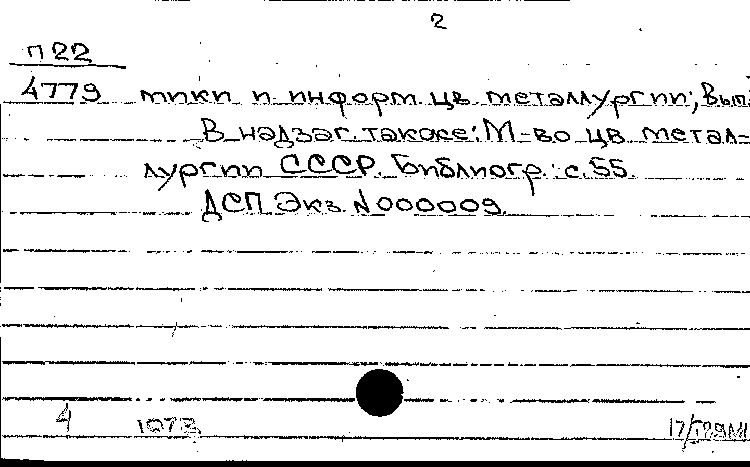 2
П22
4779 тики и информ. цв. металлургии; Вып.
В надзаг. также: М-во цв. метал-
лургии СССР. Библиогр.: с. 55.
ДСП. Экз. N 000009.
4 107З